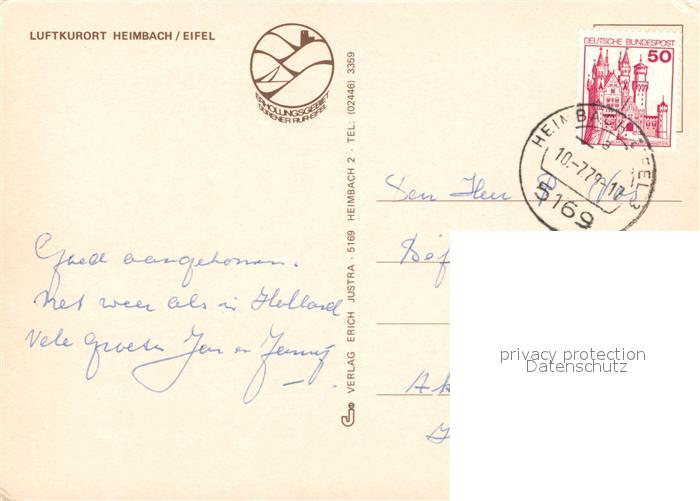 LUFTKURORT HEIMBACH / EIFEL
ERHOLUNGSGEBIET
DÜRENER RUR-EIFEL
Goed aangekomen.
Het weer als in Holland
Vele groeten Jan en Jenny
VERLAG ERICH JUSTRA · 5169 HEIMBACH 2 · TEL.: (02446) 3359
DEUTSCHE BUNDESPOST
50
HEIMBACH, EIFEL 3
10.-7.79.-1
5169
Den Heer P Vos
privacy protection
Datenschutz